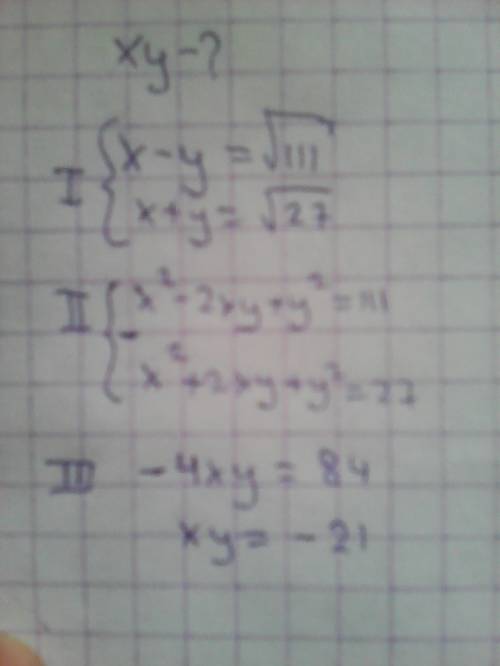 xy - ?
I { x - y = √111
x + y = √27
II { x² - 2xy + y² = 111
- x² + 2xy + y² = 27
III - 4xy = 84
xy = - 21